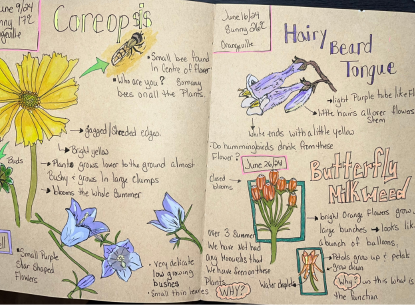 June 9/24
Sunny 17°
Orangeville
Coreopsis
• Small bee found
in Centre of flower
• Who are you? So many
bees on all the Plants.
→ Jagged/Shreded edges.
Bright yellow
• Plant grows lower to the ground almost
Bushy + grows in large clumps
• blooms the whole Summer
Buds
• Small Purple
Star Shaped
Flowers
• Very delicate
low growing
bushes
• Small thin leaves
June 16/24
Sunny 26°
Orangeville
Hairy
Beard
Tongue
→ light Purple tube like
→ little hairs all over flowers
Stem
white ends with a little yellow
• Do hummingbirds drink from these
Flower?
June 26/24
Closed
blooms
Butterfly
Milkweed
→ bright Orange Flowers grow
large bunches → looks like
a bunch of balloons.
Over 3 Summer
We have Not had
any Monarchs that
We have Seen on these
Plants.
WHY?
Water droplet
Petals grow up + petals
Grow down
Why?